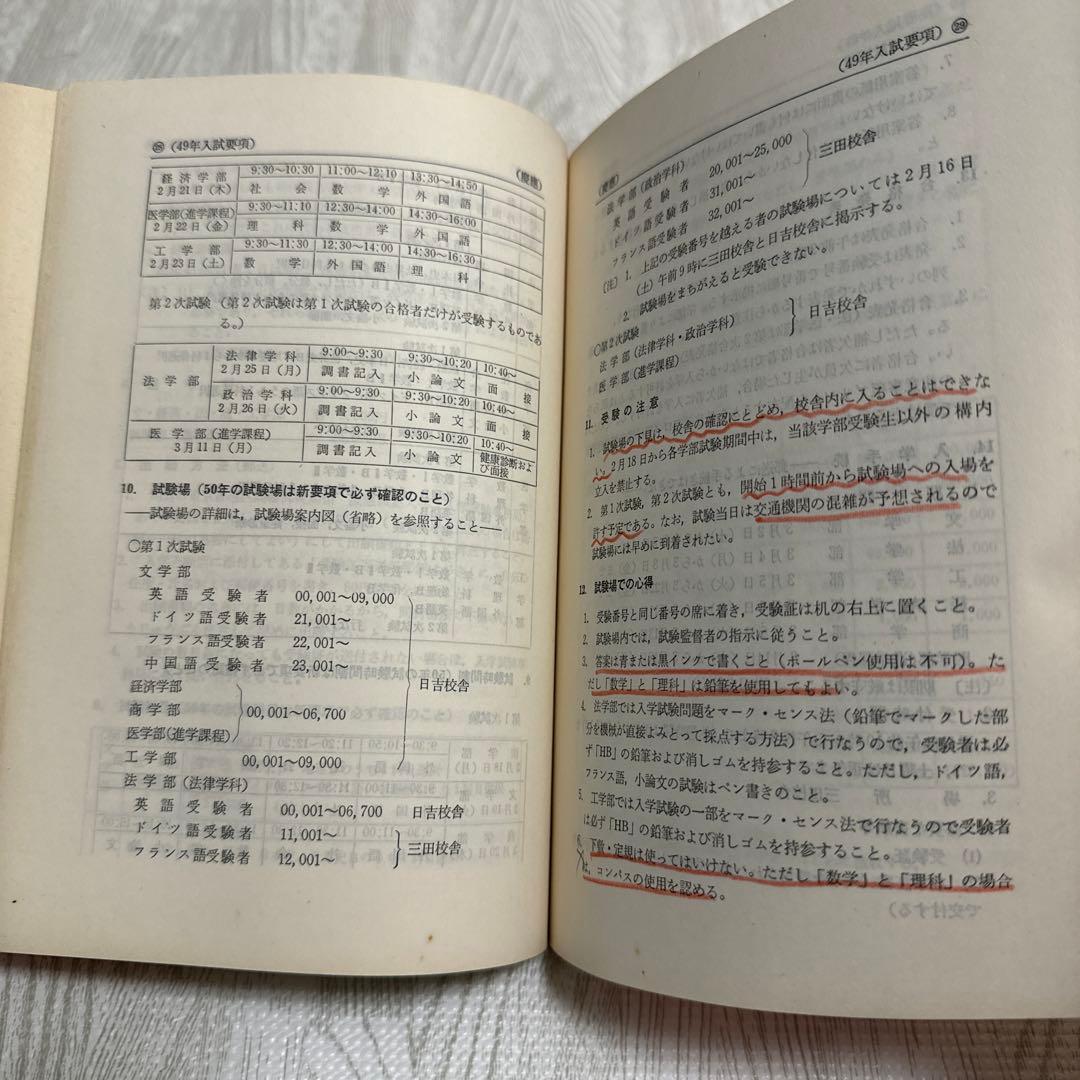 ㉘ (49年入試要項) (慶應)
経済学部 9:30〜10:30 11:00〜12:10 13:30〜14:50
2月21日(木) 社会 数学 外国語
医学部(進学課程) 9:30〜11:10 12:30〜14:00 14:30〜16:00
2月22日(金) 理科 数学 外国語
工学部 9:30〜11:30 12:30〜14:00 14:40〜16:30
2月23日(土) 数学 外国語 理科
第2次試験 (第2次試験は第1次試験の合格者だけが受験するものであ
る。)
法学部
法律学科 9:00〜9:30 9:30〜10:20 10:40〜
2月25日(月) 調書記入 小論文 面接
政治学科 9:00〜9:30 9:30〜10:20 10:40〜
2月26日(火) 調書記入 小論文 面接
医学部(進学課程) 9:00〜9:30 9:30〜10:20 10:40〜
3月11日(月) 調書記入 小論文 健康診断および面接
10. 試験場 (50年の試験場は新要項で必ず確認のこと)
——試験場の詳細は,試験場案内図(省略)を参照すること——
○第1次試験
文学部
英語受験者 00,001〜09,000
ドイツ語受験者 21,001〜
フランス語受験者 22,001〜
中国語受験者 23,001〜
経済学部
商学部 00,001〜06,700
医学部(進学課程)
工学部 00,001〜09,000
日吉校舎
法学部(法律学科)
英語受験者 00,001〜06,700 日吉校舎
ドイツ語受験者 11,001〜
フランス語受験者 12,001〜
三田校舎
(49年入試要項) ㉙
(慶應)
法学部(政治学科)
英語受験者 20,001〜25,000
ドイツ語受験者 31,001〜
フランス語受験者 32,001〜
三田校舎
〔注〕 1. 上記の受験番号を越える者の試験場については2月16日
(土)午前9時に三田校舎と日吉校舎に掲示する。
2. 試験場をまちがえると受験できない。
○第2次試験
法学部(法律学科・政治学科)
医学部(進学課程)
日吉校舎
11. 受験の注意
1. 試験場の下見は,校舎の確認にとどめ,校舎内に入ることはできな
い。2月18日から各学部試験期間中は,当該学部受験生以外の構内
立入を禁止する。
2. 第1次試験,第2次試験とも,開始1時間前から試験場への入場を
許す予定である。なお,試験当日は交通機関の混雑が予想されるので
試験場には早めに到着されたい。
12. 試験場での心得
1. 受験番号と同じ番号の席に着き,受験証は机の右上に置くこと。
2. 試験場内では,試験監督者の指示に従うこと。
3. 答案は青または黒インクで書くこと(ボールペン使用は不可)。た
だし「数学」と「理科」は鉛筆を使用してもよい。
4. 法学部では入学試験問題をマーク・センス法(鉛筆でマークした部
分を機械が直接よみとって採点する方法)で行なうので,受験者は必
ず「HB」の鉛筆および消しゴムを持参すること。ただし,ドイツ語,
フランス語,小論文の試験はペン書きのこと。
5. 工学部では入学試験の一部をマーク・センス法で行なうので受験者
は必ず「HB」の鉛筆および消しゴムを持参すること。
6. 下敷・定規は使ってはいけない。ただし「数学」と「理科」の場合
は,コンパスの使用を認める。